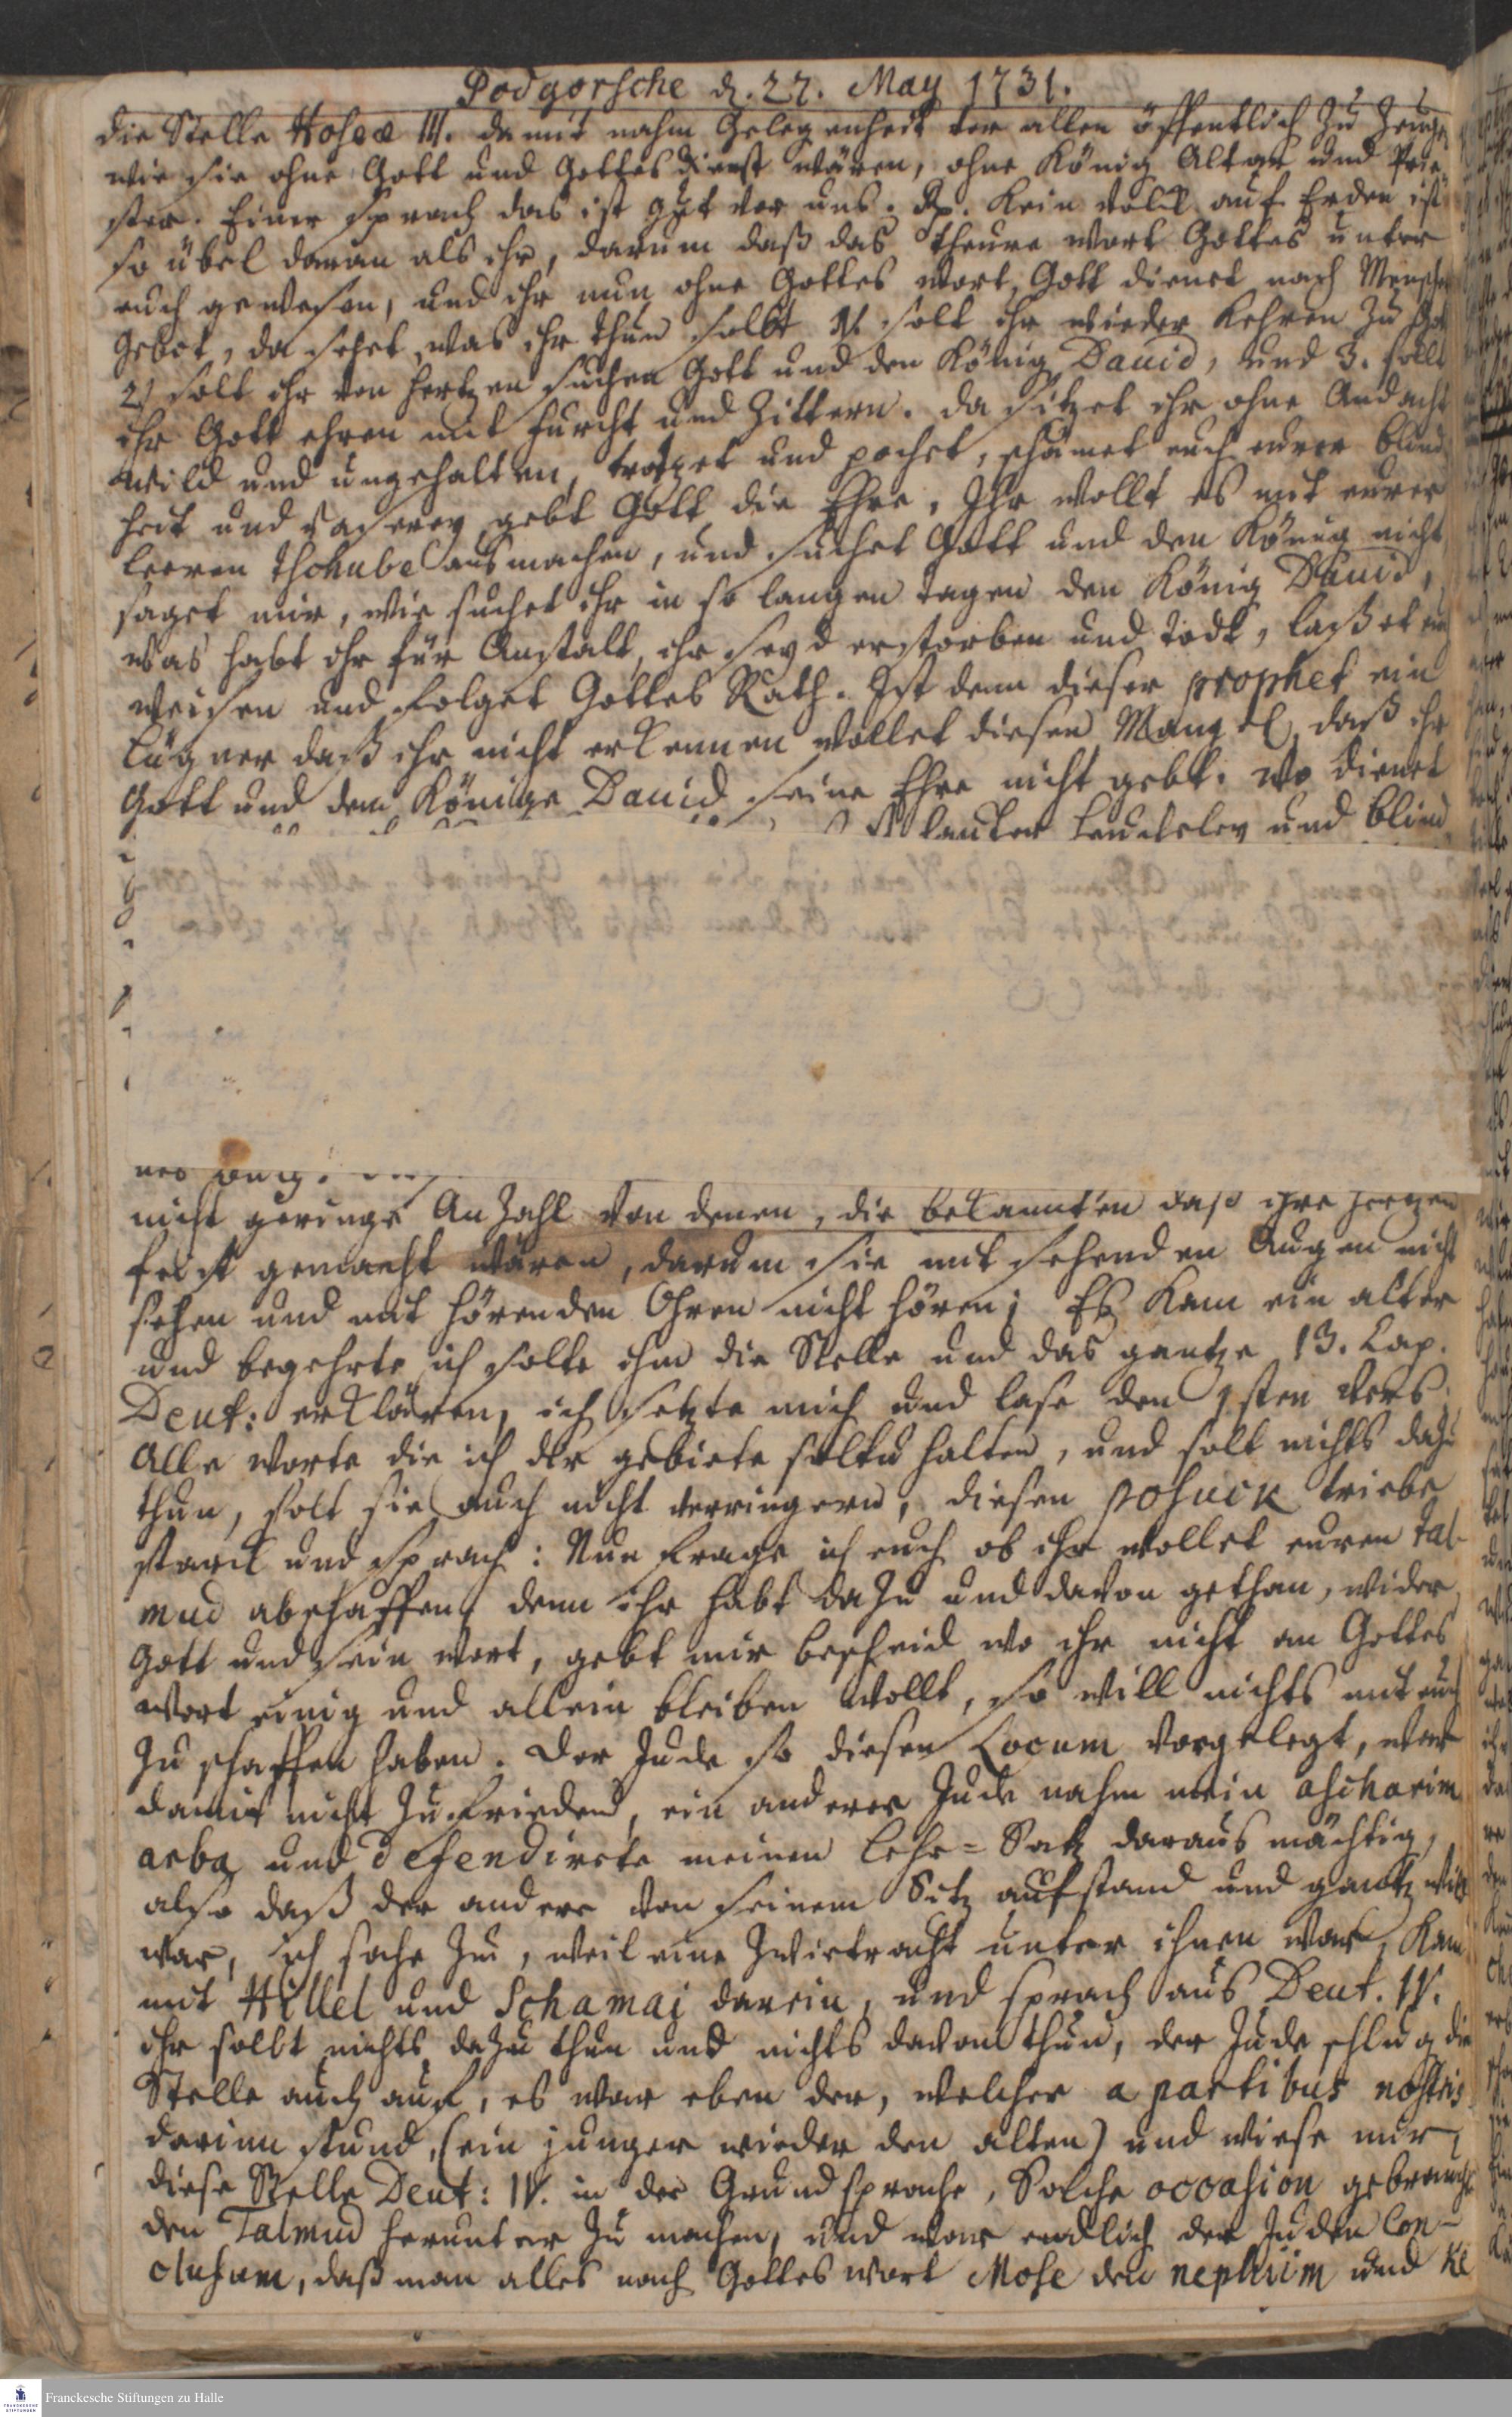 Podgorsche d. 27. May 1731.
die Stelle Hoseæ III. damit nahm Gelegenheit vor allen öffentlich zu zeugen
wie sie ohne Gott und Gottesdienst wären, ohne König Altar und Prie-
ster. Einer sprach das ist gut vor uns. Rp. Kein Volck auf Erden ist
so übel daran als ihr, darum daß das theure Wort Gottes unter
euch gewesen, und ihr nun ohne Gottes Wort, Gott dienet nach Menschen
Gebot, da sehet was ihr thun sollt 1. solt ihr wieder kehren zu Gott
2) solt ihr von Hertzen suchen Gott und den König David, und 3. sollt
ihr Gott ehren mit Furcht und Zittern. da sitzet ihr ohne Andacht
wild und ungehalten, trotzet und pochet, schämet euch eurer Blind
heit und Raserey gebt Gott die Ehre. Ihr wollt es mit eurer
leeren tschube ausmachen, und suchet Gott und den König nicht
saget mir, wie suchet ihr in so langen tagen den König David,
was habt ihr für Anstalt, ihr seyd erstorben und todt, laßet euch
weisen und folget Gottes Rath. Ist denn dieser prophet ein
Lügner daß ihr nicht erkennen wollet diesen Mangel, daß ihr
Gott und dem Könige David seine Ehre nicht gebt. wo dienet
lauter Heucheley und Blind
nicht geringe Anzahl von denen, die bekannten daß ihre Hertzen
feist gemacht wären, darum sie mit sehenden Augen nicht
sehen und mit hörenden Ohren nicht hören; Es kam ein alter
und begehrte ich solte ihm die Stelle und das gantze 13. Cap.
Deut: erklären, ich setzte mich und lase den 1sten Vers.
Alle Worte die ich dir gebiete soltu halten, und solt nichts dazu
thun, solt sie auch nicht verringern, diesen posuck triebe
starck und sprach: Nun frage ich euch ob ihr wollet euren Tal-
mud abschaffen, denn ihr habt dazu und davon gethan, wider
Gott und sein Wort, gebt mir bescheid wo ihr nicht an Gottes
Wort einig und allein bleiben wollt, so will nichts mit euch
zu schaffen haben. Der Jude so diesen Locum vorgelegt, war
damit nicht zu frieden, ein anderer Jude nahm mein aschorim
arba und defendirete meinen Lehr-Satz daraus mächtig,
also daß der andere von seinem Sitz aufstand und gantz wild
war, ich sahe zu, weil eine Zwietracht unter ihnen war, kam
mit Hillel und Schamai darein, und sprach aus Deut. IV.
ihr sollt nichts dazu thun und nichts davon thun, der Jude schlug die
Stelle auch auf, es war eben der, welcher a partibus nostris
darinn stund, (ein junger wieder den alten) und wiese mir
diese Stelle Deut: IV. in der Grundsprache, Solche occasion gebrauchte
den Talmud herunter zu machen, und war endlich der Juden Con-
clusum, daß man alles nach Gottes Wort Mose den nephiim und Ke
Franckesche Stiftungen zu Halle